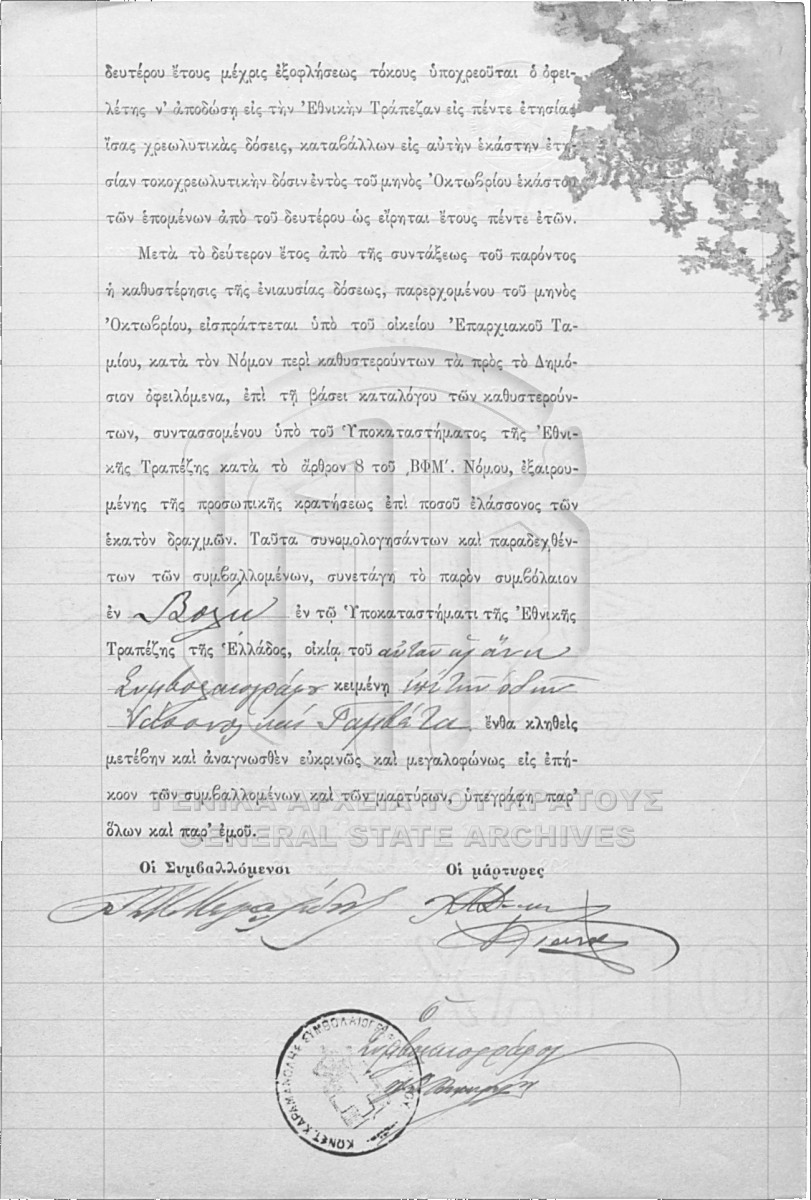 δευτέρου ἔτους μέχρις ἐξοφλήσεως τόκους ὑποχρεοῦται ὁ ὀφει-
λέτης ν' ἀποδώσῃ εἰς τὴν Ἐθνικὴν Τράπεζαν εἰς πέντε ἐτησίας
ἴσας χρεωλυτικὰς δόσεις, καταβάλλων εἰς αὐτὴν ἑκάστην ἐτη-
σίαν τοκοχρεωλυτικὴν δόσιν ἐντὸς τοῦ μηνὸς Ὀκτωβρίου ἑκάστου
τῶν ἑπομένων ἀπὸ τοῦ δευτέρου ὡς εἴρηται ἔτους πέντε ἐτῶν.
Μετὰ τὸ δεύτερον ἔτος ἀπὸ τῆς συντάξεως τοῦ παρόντος
ἡ καθυστέρησις τῆς ἐνιαυσίας δόσεως, παρερχομένου τοῦ μηνὸς
Ὀκτωβρίου, εἰσπράττεται ὑπὸ τοῦ οἰκείου Ἐπαρχιακοῦ Τα-
μίου, κατὰ τὸν Νόμον περὶ καθυστερούντων τὰ πρὸς τὸ Δημό-
σιον ὀφειλόμενα, ἐπὶ τῇ βάσει καταλόγου τῶν καθυστερούν-
των, συντασσομένου ὑπὸ τοῦ Ὑποκαταστήματος τῆς Ἐθνι-
κῆς Τραπέζης κατὰ τὸ ἄρθρον 8 τοῦ ͵ΒΦΜ΄. Νόμου, ἐξαιρου-
μένης τῆς προσωπικῆς κρατήσεως ἐπὶ ποσοῦ ἐλάσσονος τῶν
ἑκατὸν δραχμῶν. Ταῦτα συνομολογησάντων καὶ παραδεχθέν-
των τῶν συμβαλλομένων, συνετάγη τὸ παρὸν συμβόλαιον
ἐν Βόλῳ ἐν τῷ Ὑποκαταστήματι τῆς Ἐθνικῆς
Τραπέζης τῆς Ἑλλάδος, οἰκίᾳ τοῦ
Συμβολαιογράφου κειμένη ἐπὶ τῆς ὁδοῦ
Ἰάσονος καὶ Γαμβέτα ἔνθα κληθεὶς
μετέβην καὶ ἀναγνωσθὲν εὐκρινῶς καὶ μεγαλοφώνως εἰς ἐπή-
κοον τῶν συμβαλλομένων καὶ τῶν μαρτύρων, ὑπεγράφη παρ'
ὅλων καὶ παρ' ἐμοῦ.
ΓΕΝΙΚΑ ΑΡΧΕΙΑ ΤΟΥ ΚΡΑΤΟΥΣ
GENERAL STATE ARCHIVES
Οἱ Συμβαλλόμενοι Οἱ μάρτυρες
Ὁ
Συμβολαιογράφος
ΚΩΝΣΤ. ΚΑΡΑΜΑΝΩΛΗΣ ΣΥΜΒΟΛΑΙΟΓΡ